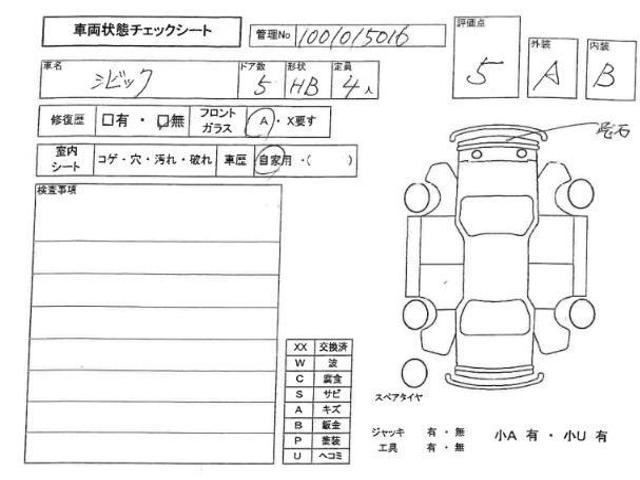 車両状態チェックシート
管理No 1001015016
評価点
5
外装
A
内装
B
車名 シビック
ドア数 5
形状 HB
定員 4人
修復歴 □有・□無
フロントガラス A・X要す
室内シート コゲ・穴・汚れ・破れ
車歴 自家用・( )
検査事項
飛石
XX 交換済
W 波
C 腐食
S サビ
A キズ
B 鈑金
P 塗装
U ヘコミ
スペアタイヤ
ジャッキ 有・無
工具 有・無
小A 有・小U 有